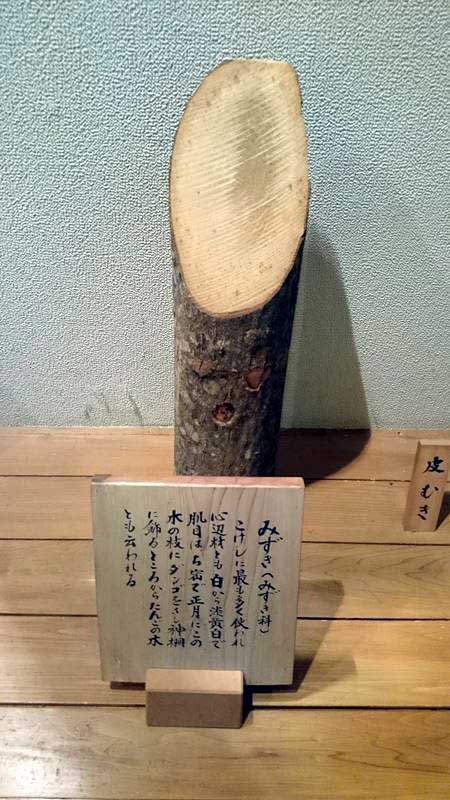 みずき(みずき科)
こけしに最も多く使われ
心辺材とも白から淡黄白で
肌目はち密で正月にこの
木の枝にダンゴをさし神棚
に飾るところからだんごの木
とも云われる
皮むき